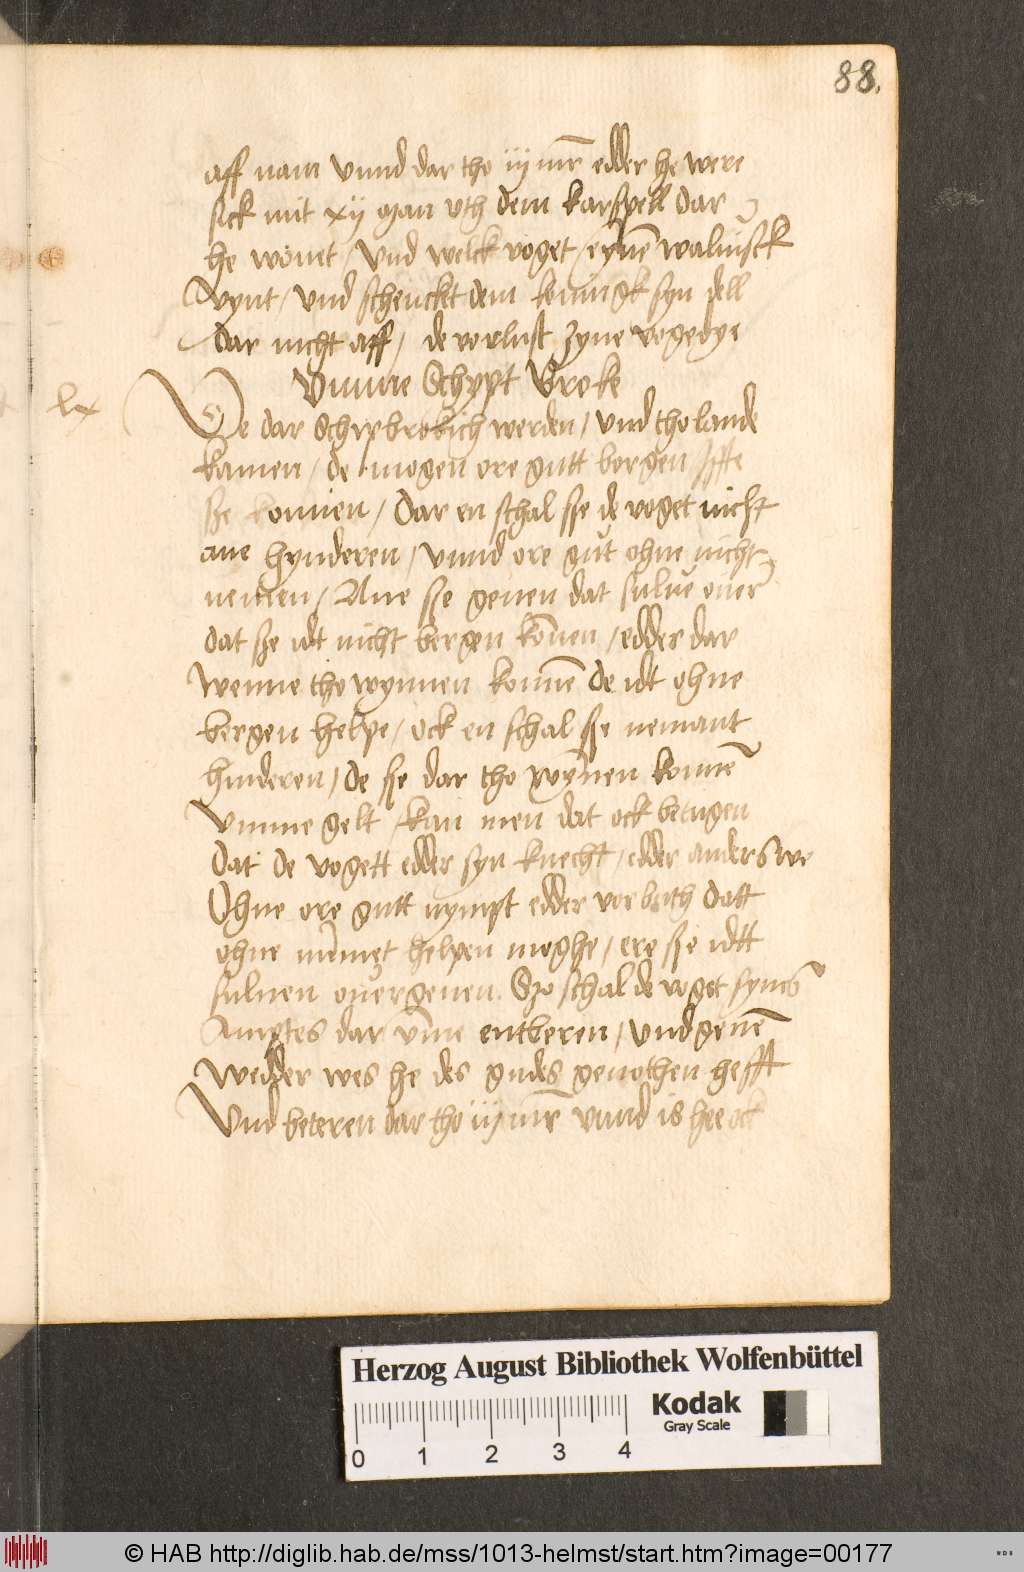 88.
aff nam vnnd dar tho iij mr̄ edder he were
sick mit xij man vth dem karspell dar
he wonet / vnd welck voget / eynē waluisck
vynt / vnd schencket dem koningk syn dell
dar nicht aff / de vorlust zyne vogedye
Vmme Schypt Broke
lx
De dar Schipbrokich werden / vnd tho lande
kamen / de mogen ore gutt bergen Jffte
sze konnen / dar en schal sse de voget nicht
ane hynderen / vnnd ore gut ohne nicht
nemen / Ane sse geuen dat sulue ouer
dat sze idt nicht bergen kōnen / edder dar
wenne tho wynnen konnē de idt ohne
bergen helpe / ock en schal sse nemant
hinderen / de sse dar tho wynen konnē
vmme gelt / kan men dat ock betugen
dat de vogett edder syn knecht / edder anders we
Ohne ore gutt nympt edder vorbuth datt
ohne helpen moghe / ere sse idtt
suluen ouergeuen. Szo schal de voget synes
Amptes dar vm̄e entberen / vnd geuē
wedder wes he des gudes genothen hefft
Vnd beteren dar tho iij mr̄ vnnd is hee ock
Herzog August Bibliothek Wolfenbüttel
Kodak
Gray Scale
0 1 2 3 4
© HAB http://diglib.hab.de/mss/1013-helmst/start.htm?image=00177